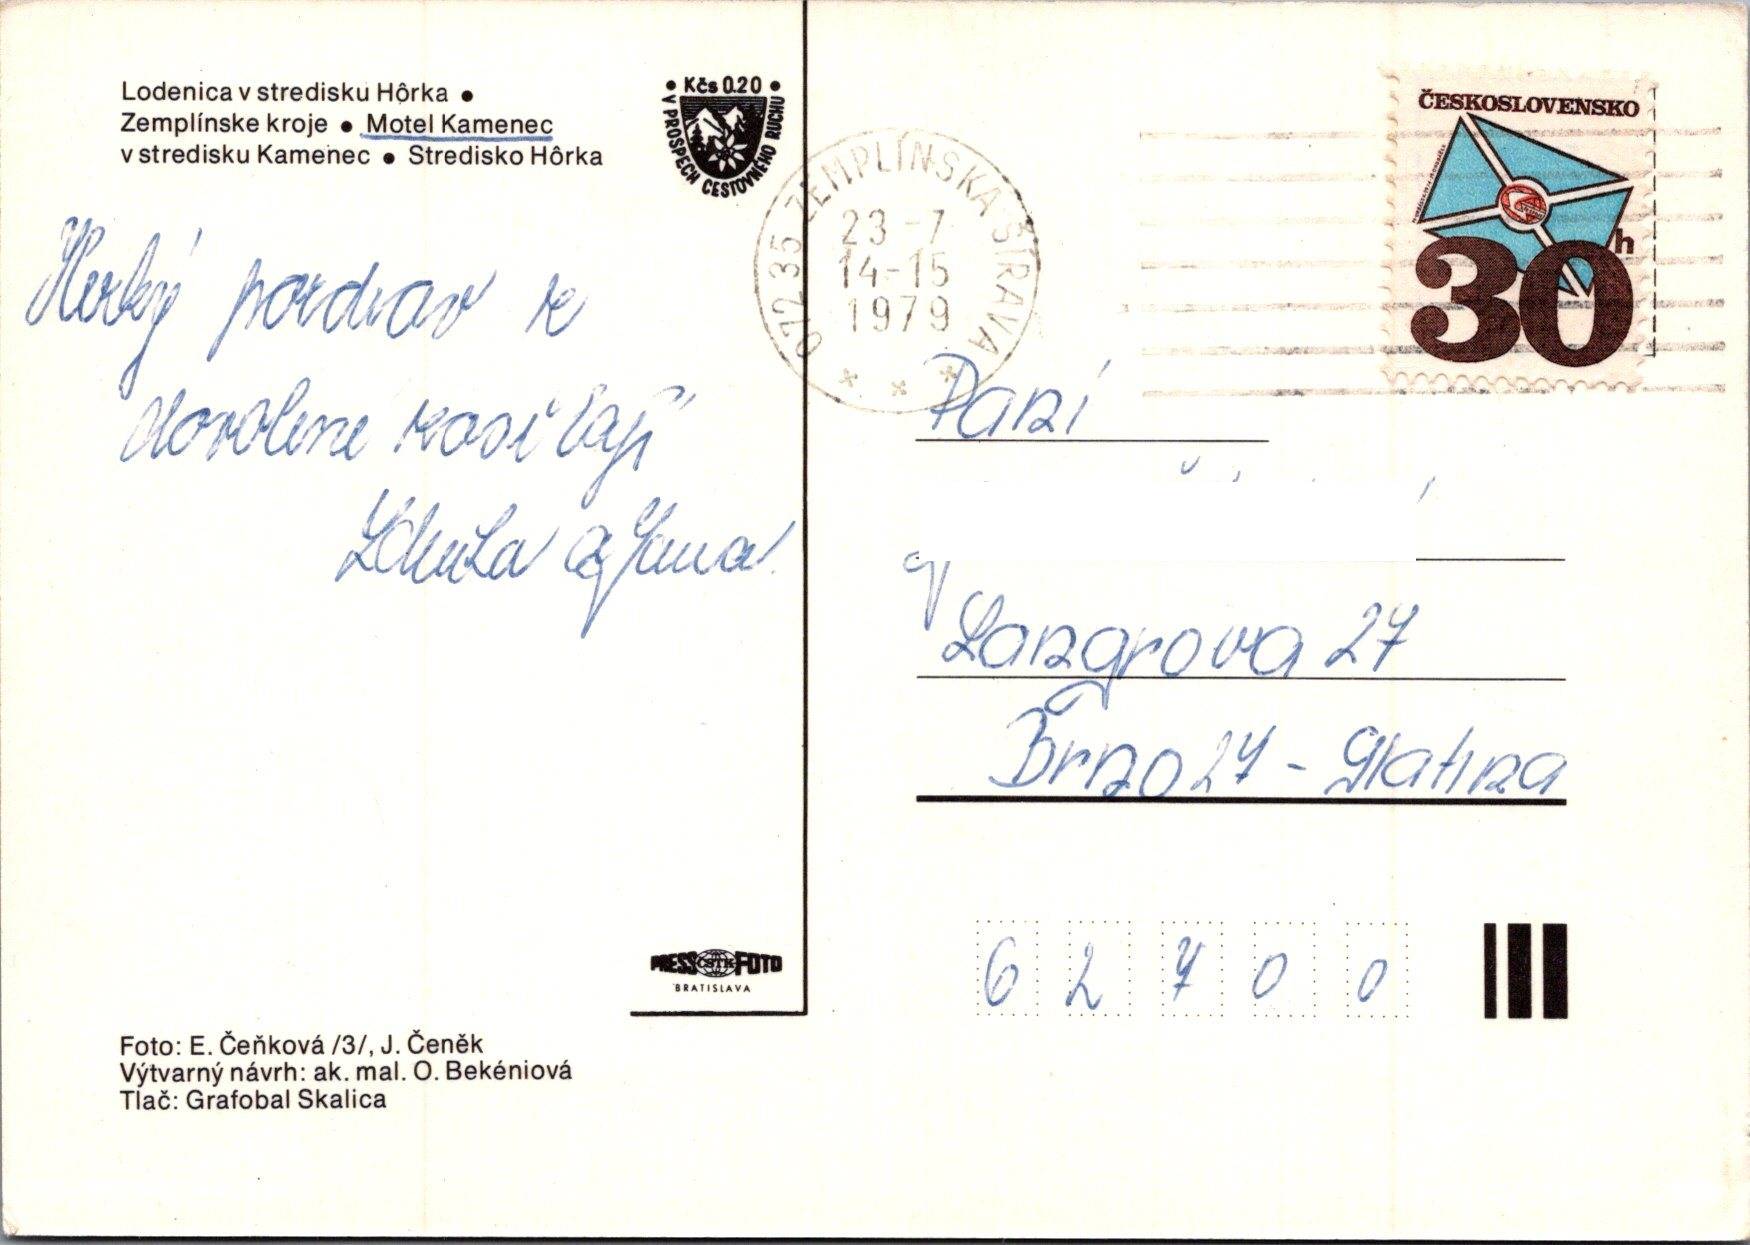 Lodenica v stredisku Hôrka •
Zemplínske kroje • Motel Kamenec
v stredisku Kamenec • Stredisko Hôrka
• Kčs 0.20 •
V PROSPECH CESTOVNÉHO RUCHU
072 35 ZEMPLÍNSKA ŠIRAVA
23 -7
14-15
1979
* * *
ČESKOSLOVENSKO
30 h
pozdrav z
dovolené zasílají
Zdeňka a Jana
Paní
Langrova 27
Brno 27 - Slatina
62700
PRESS ČSTK FOTO
BRATISLAVA
Foto: E. Čeňková /3/, J. Čeněk
Výtvarný návrh: ak. mal. O. Bekéniová
Tlač: Grafobal Skalica